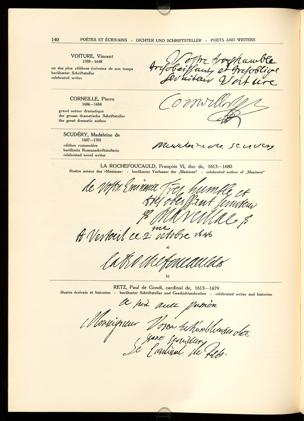 140 POÈTES ET ÉCRIVAINS - DICHTER UND SCHRIFTSTELLER - POETS AND WRITERS
VOITURE, Vincent
1598-1648
un des plus célèbres écrivains de son temps
berühmter Schriftsteller
celebrated writer
Votre treshumble
tresobeissant et tresobligé
serviteur Voiture
CORNEILLE, Pierre
1606-1684
grand auteur dramatique
der grosse dramatische Schriftsteller
the great dramatic author
Corneille
SCUDÉRY, Madeleine de
1607-1701
célèbre romancière
berühmte Romanschriftstellerin
celebrated novel writer
LA ROCHEFOUCAULD, François VI, duc de, 1613-1680
illustre auteur des "Maximes" - berühmter Verfasser der "Maximen" - celebrated author of "Maximes"
de votre Eminence Tres humble et
tres obeissant serviteur
Marcillac
A Verteuil ce 2 octobre
a)
La Rochefoucauld
b)
RETZ, Paul de Gondi, cardinal de, 1613-1679
illustre écrivain et historien - berühmter Schriftsteller und Geschichtsschreiber - celebrated writer and historian
Monseigneur Votre
Le Cardinal de Rets.